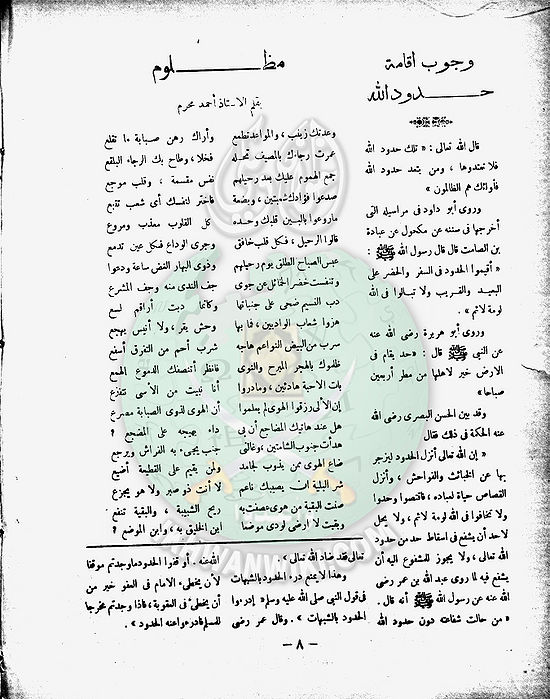 وجوب اقامة
حدود الله
قال الله تعالى : « تلك حدود الله
فلا تعتدوها ، ومن يتعد حدود الله
فأولئك هم الظالمون »
وروى أبو داود فى مراسيله التى
أخرجها فى سننه عن مكحول عن عبادة
بن الصامت قال قال رسول الله ﷺ :
« أقيموا الحدود فى السفر والحضر على
البعيد والقريب ولا تبالوا فى الله
لومة لائم » .
وروى أبو هريرة رضى الله عنه
عن النبى ﷺ قال : « حد يقام فى
الارض خير لاهلها من مطر أربعين
صباحا »
وقد بين الحسن البصرى رضى الله
عنه الحكمة فى ذلك فقال
« إن الله تعالى أنزل الحدود لينزجر
بها عن الخبائث والفواحش ، وأنزل
القصاص حياة لعباده ، فاقتصوا وحدوا
ولا تخافوا فى الله لومة لائم ، ولا يحل
لاحد أن يشفع فى اسقاط حد من حدود
الله تعالى ، ولا يجوز للمشفوع اليه أن
يشفع فيه لما روى عبد الله بن عمر رضى
الله عنه عن رسول الله ﷺ أنه قال .
« من حالت شفاعته دون حدود الله
تعالى فقد ضاد الله تعالى » .
وهذا لا يمنع درء الحدود بالشبهات
فى قول النبى صلى الله عليه وسلم « إدرءوا
الحدود بالشبهات » . وقال عمر رضى
الله عنه . أو قفوا الحدود ما وجدتم موقفا
لأن يخطىء الامام فى العفو خير من
أن يخطىء فى العقوبة ، فاذا وجدتم مخرجا
للمسلم فادرءوا عنه الحدود » .
مظلوم
بقلم الاستاذ أحمد محرم
وعدتك زينب ، والمواعد تطمع وأراك رهن صبابة ما تقلع
غرت رجاءك بالمصيف تحله فخلا ، وطاح بك الرجاء البلقع
جمع الهموم عليك بعد رحيلهم نفس مقسمة ، وقلب موجع
صدعوا فؤادك شعبتين ، وبضعة فاختر لنفسك أى شعب تتبع
ما روعوا بالبين قلبك وحده كل القلوب معذب ومروع
قالوا الرحيل ، فكل قلب خافق وجرى الوداع فكل عين تدمع
عبس الصباح الطلق يوم رحيلهم وذوى النهار الغض ساعة ودعوا
وتنفست خضر الخمائل عن جوى جف الندى منه وجف المشرع
دب النسيم ضحى على جنباتها وكأنما دبت أراقم لسع
هزوا شعاب الواديين ، فما بها وحش يقر ، ولا أنيس يهجع
سرب من البيض النواعم هاجه شرب أحم من التفرق أسفع
ظلموك بالهجر المبرح والنوى فانظر أتنصفك الدموع الهمع
بات الاحبة هادئين ، وما دروا أنا نبيت من الأسى نتفزع
إن الألى رزقوا الهوى لم يعلموا أن الهوى لذوى الصبابة مصرع
هل عند هاتيك المضاجع أن بى داء يهيجه على المضجع ؟
هدأت جنوب الشامتين ، وغالنى جنب يجىء به الفراش ويرجع
ضاع الهوى ممن يذوب لجامد ولمن يقيم على القطيعة أضيع
شر البلية ان يصيبك ناعم لا أنت ذو صبر ولا هو يجزع
صنت البقية من هوى عصفت به ريح الشبيبة ، والبقية تنفع
وبقيت لا ارضى لودى موضعا اين الخليق به ، واين الموضع ؟
— ٨ —